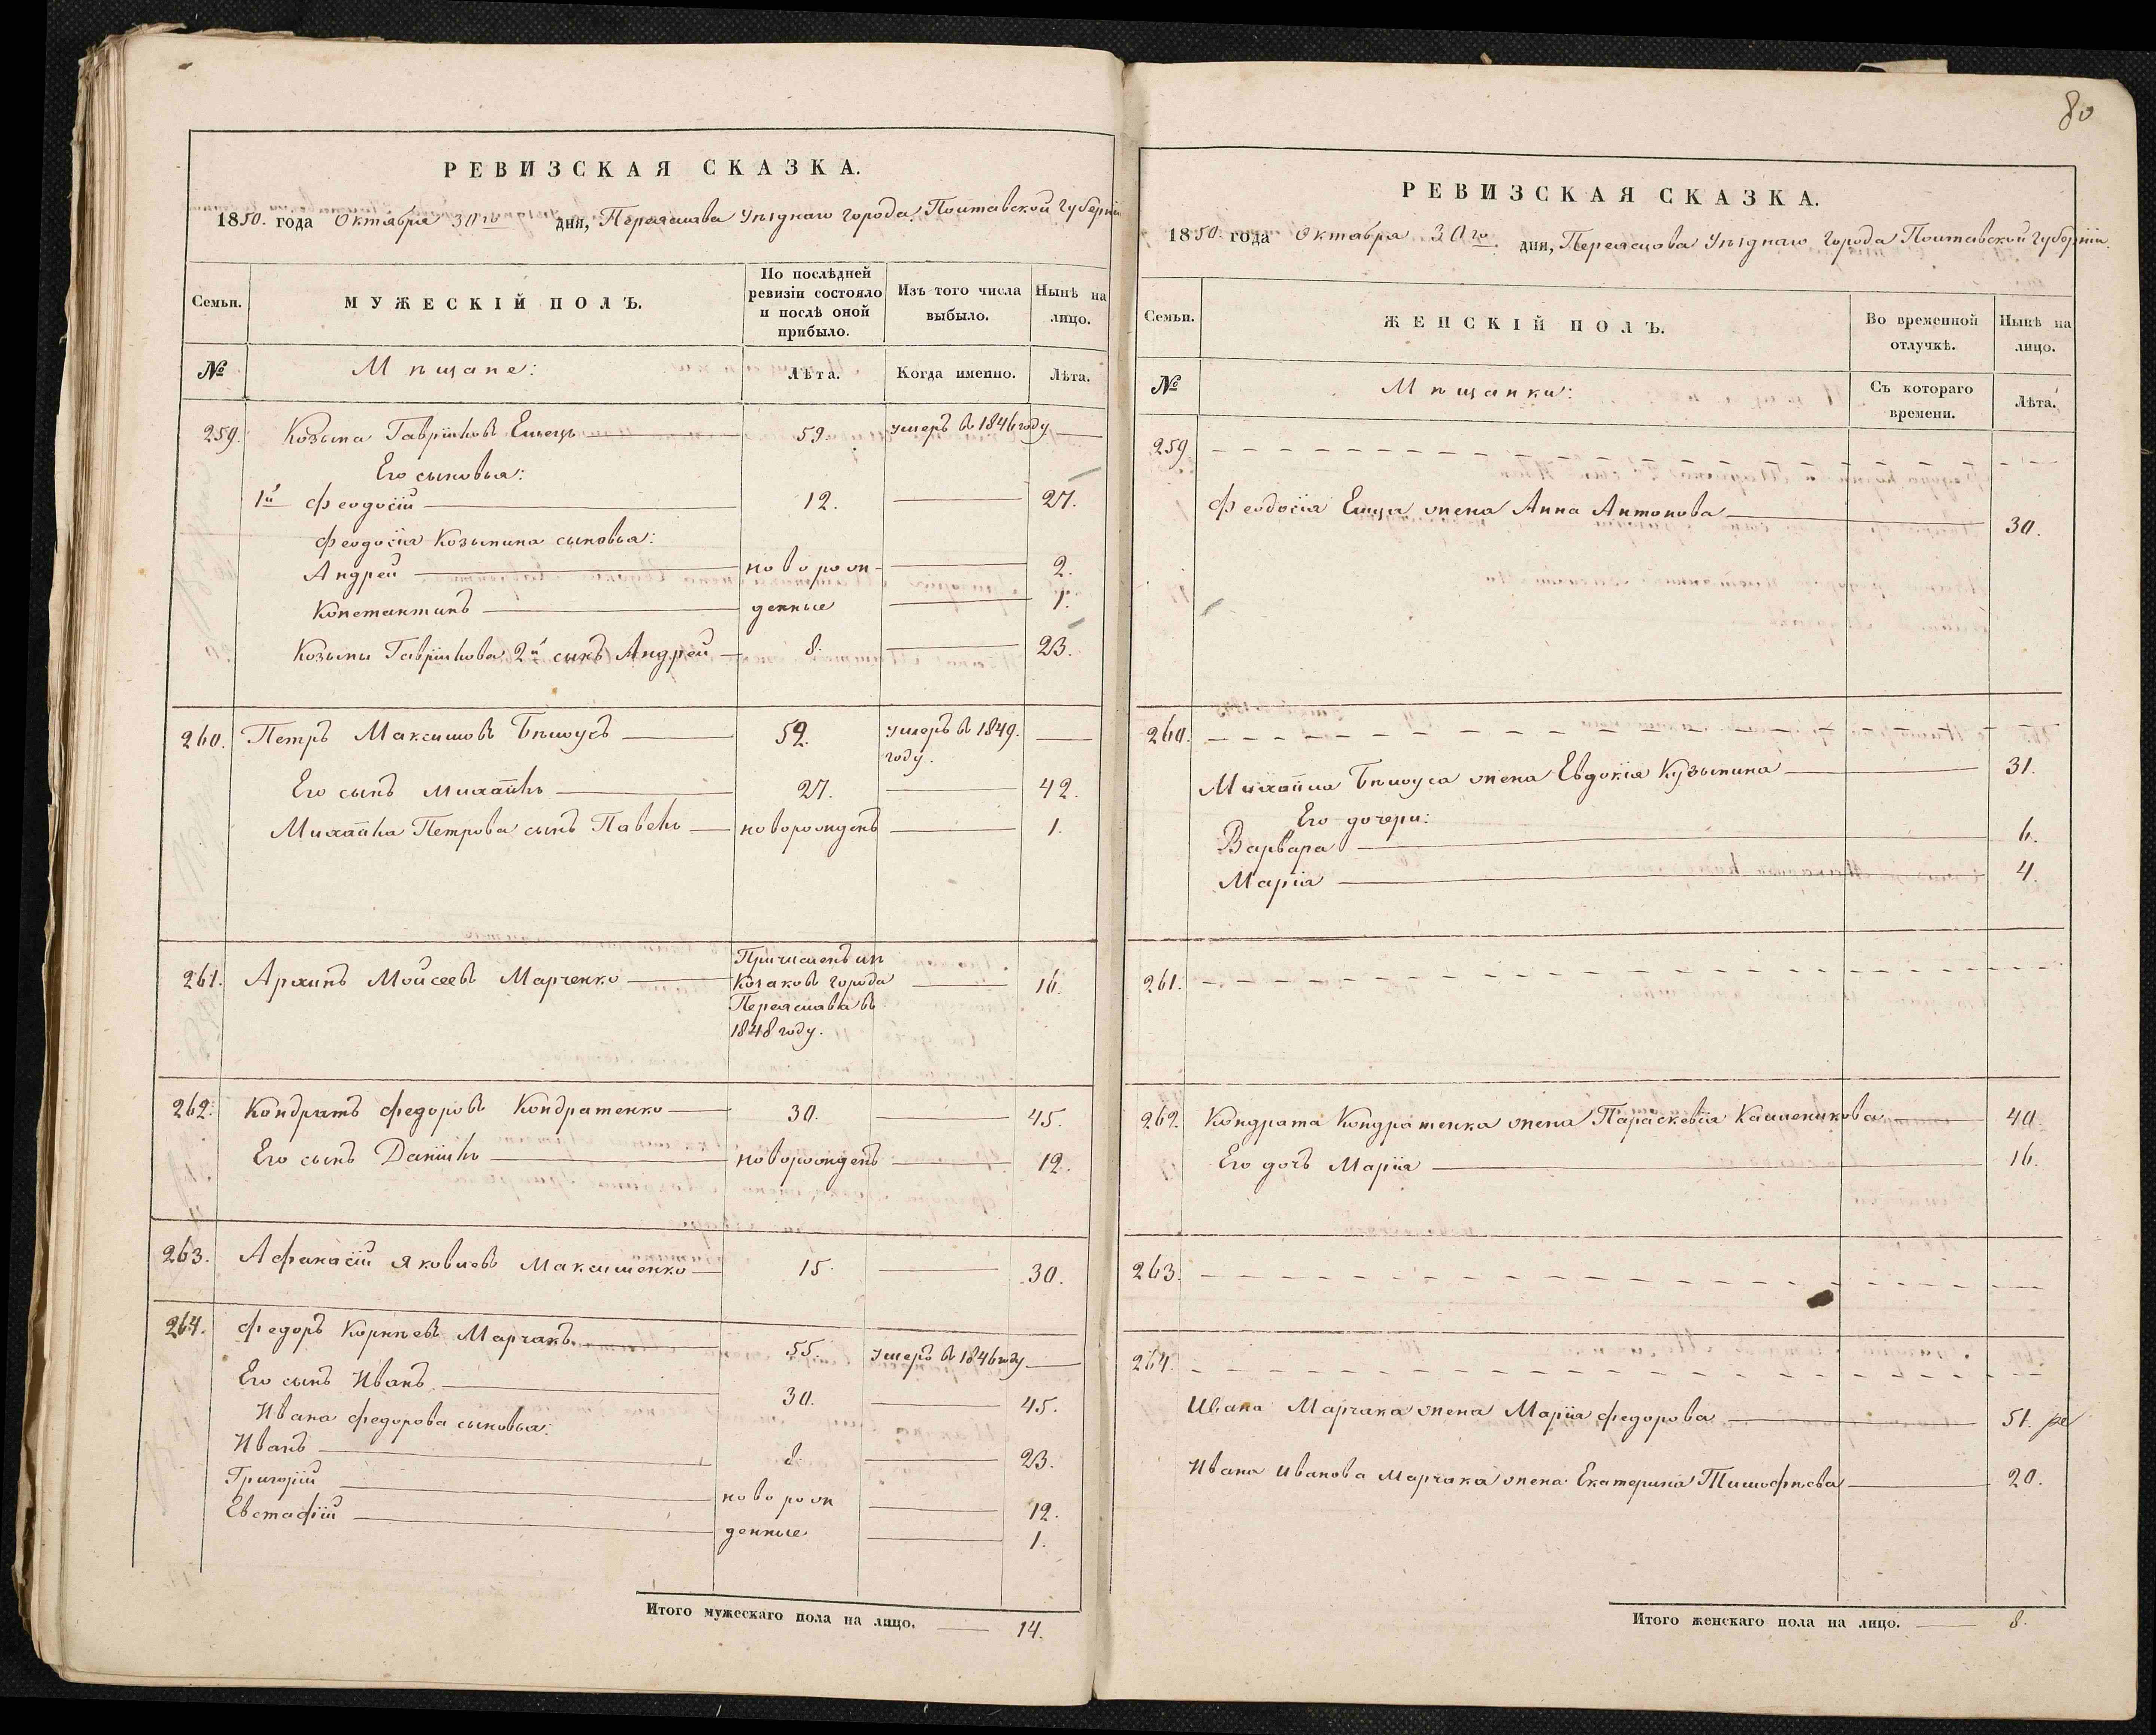 80
РЕВИЗСКАЯ СКАЗКА.
1850. года Октября 30го дня, Переяслава Уѣзднаго города Полтавской Губерніи
Семьи.
МУЖЕСКІЙ ПОЛЪ.
По послѣдней ревизіи состояло и послѣ оной прибыло.
Изъ того числа выбыло.
Нынѣ на лицо.
№
Мѣщане:
Лѣта.
Когда именно.
Лѣта.
259. Козьма Гавріиловъ Емецъ 59. умеръ въ 1846 году
Его сыновья:
1й Феодосій 12. 27.
Феодосія Козьмина сыновья:
Андрей новорож- 2.
Константинъ денные 1.
Козьмы Гавріилова 2й сынъ Андрей 8. 23.
260. Петръ Максимовъ Бѣлоусъ 52. умеръ въ 1849. году.
Его сынъ Михаилъ 27. 42.
Михаила Петрова сынъ Павелъ новорожденъ 1.
261. Архипъ Мойсеевъ Марченко Причисленъ изъ 16.
Козаковъ города
Переяслава въ
1848 году.
262. Кондратъ Федоровъ Кондратенко 30. 45.
Его сынъ Даніилъ новорожденъ 12.
263. Афанасій Яковлевъ Максименко 15. 30.
264. Федоръ Корнѣевъ Марчакъ 55. Умеръ въ 1846 году
Его сынъ Иванъ 30. 45.
Ивана Федорова сыновья:
Иванъ 8. 23.
Григорій новорож 12.
Евстафій денные 1.
Итого мужескаго пола на лицо. 14.
РЕВИЗСКАЯ СКАЗКА.
1850. года Октября 30го дня, Переяслова Уѣзднаго Города Полтавской Губерніи.
Семьи.
ЖЕНСКІЙ ПОЛЪ.
Во временной отлучкѣ.
Нынѣ на лицо.
№
Мѣщанки:
Съ котораго времени.
Лѣта.
259.
Феодосія Емца жена Анна Антонова 30.
260.
Михаила Бѣлоуса жена Евдокія Кузьмина 31.
Его дочери:
Варвара 6.
Марія 4.
261.
262. Кондрата Кондратенка жена Параскевія 40
Его дочь Марія 16.
263.
264.
Ивана Марчака жена Марія Федорова 51.
Ивана Иванова Марчака жена Екатерина Тимофѣева 20.
Итого женскаго пола на лицо. 8.